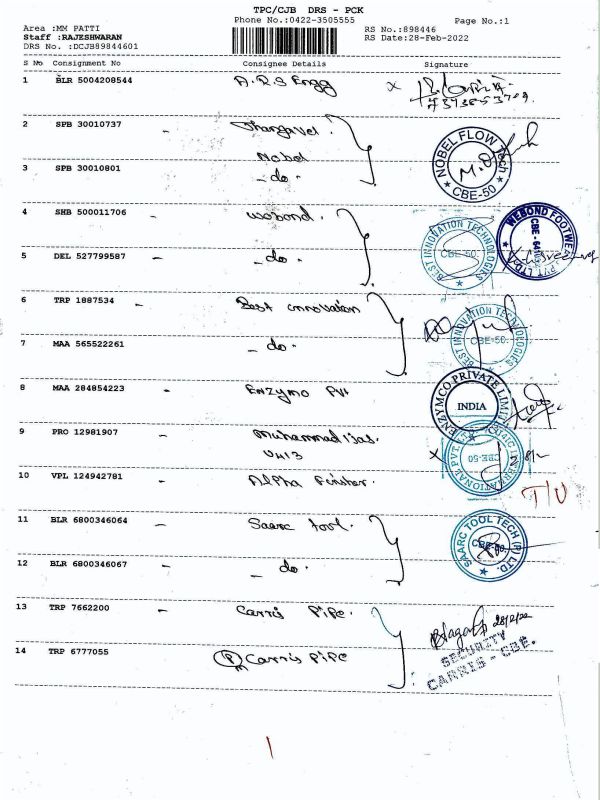 TPC/CJB DRS - PCK
Phone No.:0422-3505555 Page No.:1
Area :MM PATTI RS No.:898446
Staff :RAJESHWARAN RS Date:28-Feb-2022
DRS No. :DCJB89844601
S No Consignment No Consignee Details Signature
1 BLR 5004208544 A.R.S Engg x
2 SPB 30010737 - Thangavel
Nobel
NOBEL FLOW Tech CBE-50
3 SPB 30010801 - do -
4 SHB 500011706 - wobond.
BEST INNOVATION TECHNOLOGIES CBE-50.
WEBOND FOOTWEAR PVT. LTD. CBE - 641
5 DEL 527799587 - do -
6 TRP 1887534 - Best innovation
BEST INNOVATION TECHNOLOGIES CBE-50.
7 MAA 565522261 - do -
8 MAA 284854223 - Enzymo Pvt
ENZYMCO PRIVATE LIMITED INDIA
9 PRO 12981907 - Muhammad Ijas.
INTERNATIONAL PVT. CBE-50
10 VPL 124942781 - Alpha
T/U
11 BLR 6800346064 - Saarc tool.
SAARC TOOL TECH (P) LTD. CBE-50.
12 BLR 6800346067 - do -
13 TRP 7662200 - Carris Pipe. 28/2/22
14 TRP 6777055 Carris Pipe
SECURITY
CARRIS - CBE.